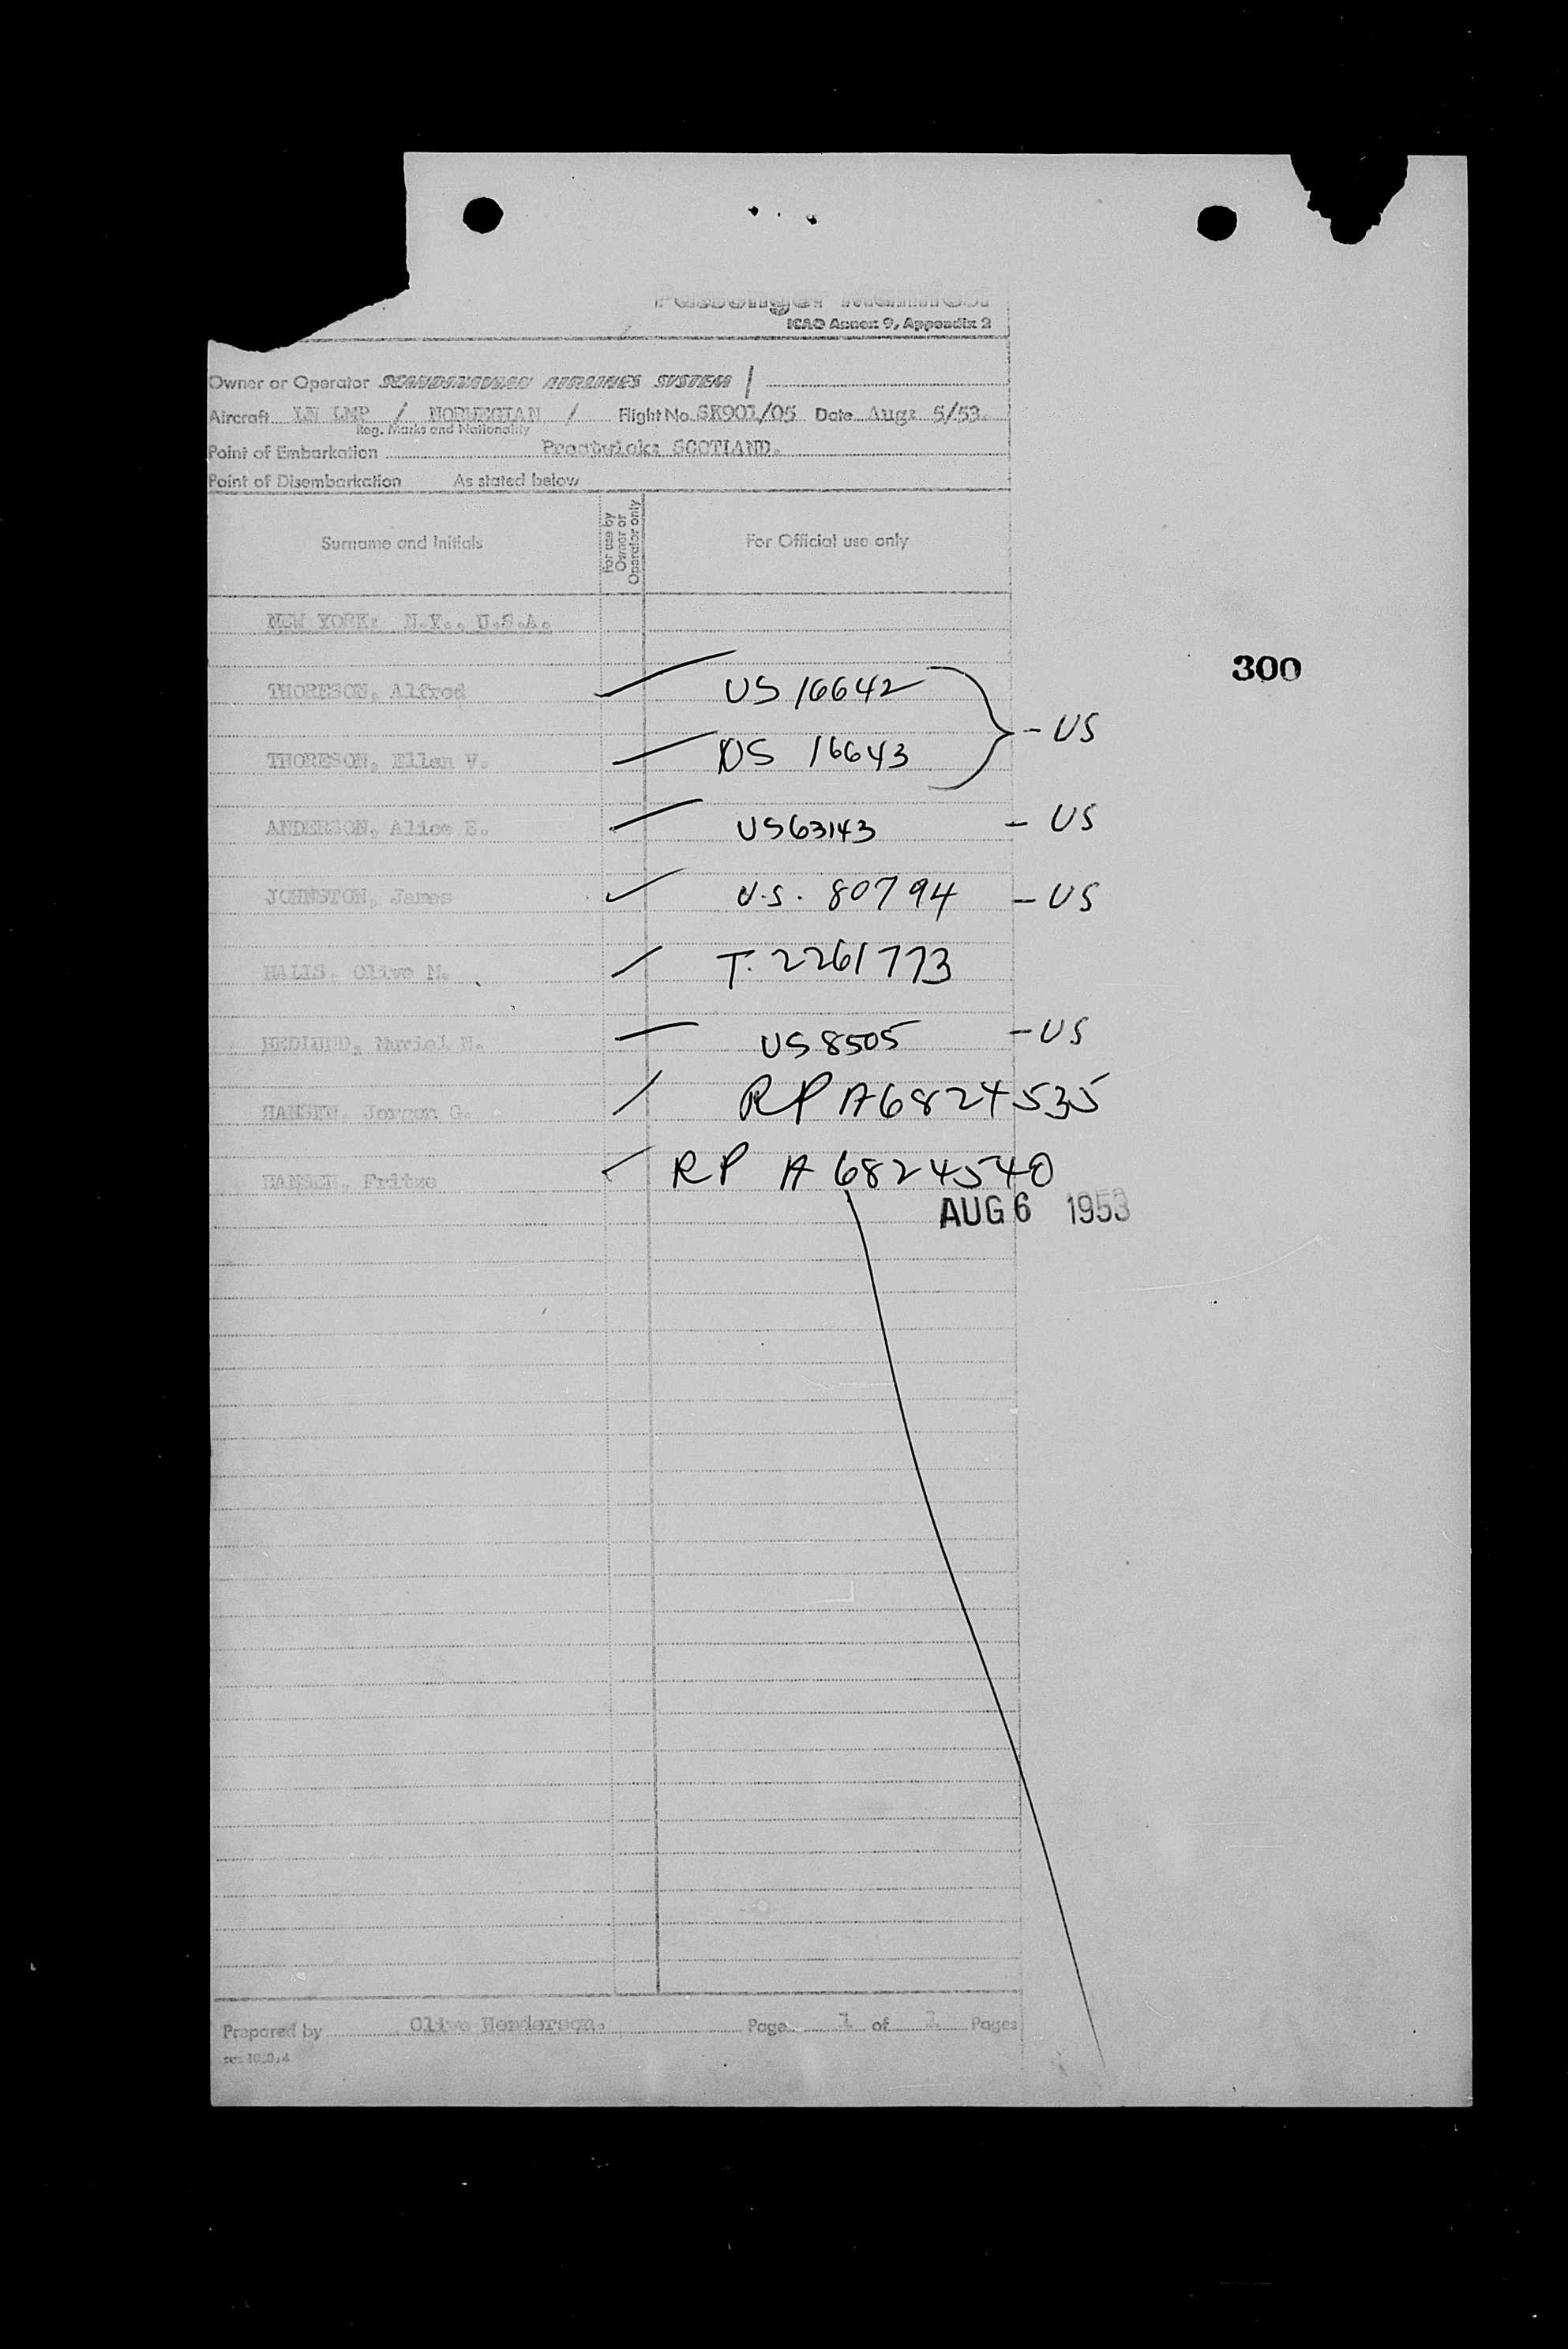 Passenger Manifest
ICAO Annex 9, Appendix 2
Owner or Operator SCANDINAVIAN AIRLINES SYSTEM /
Aircraft LN LMP / NORWEGIAN / Flight No. SK901/05 Date Aug: 5/53.
Reg. Marks and Nationality
Point of Embarkation Prestwick: SCOTLAND.
Point of Disembarkation As stated below
Surname and Initials
For use by Owner or Operator only
For Official use only
NEW YORK: N.Y.. U.S.A.
300
THORESON, Alfred US 16642
- US
THORESON, Ellen V. US 16643
ANDERSON, Alice E. US63143 - US
JOHNSTON, James U.S. 80794 - US
Olive M. T. 2261773
HEDLUND, Muriel N. US 8505 - US
HANSEN, Jorgen G. RP A6824535
HANSEN, Fritze RP A 6824540
AUG 6 1953
Prepared by Olive Henderson. Page 1 of 1 Pages